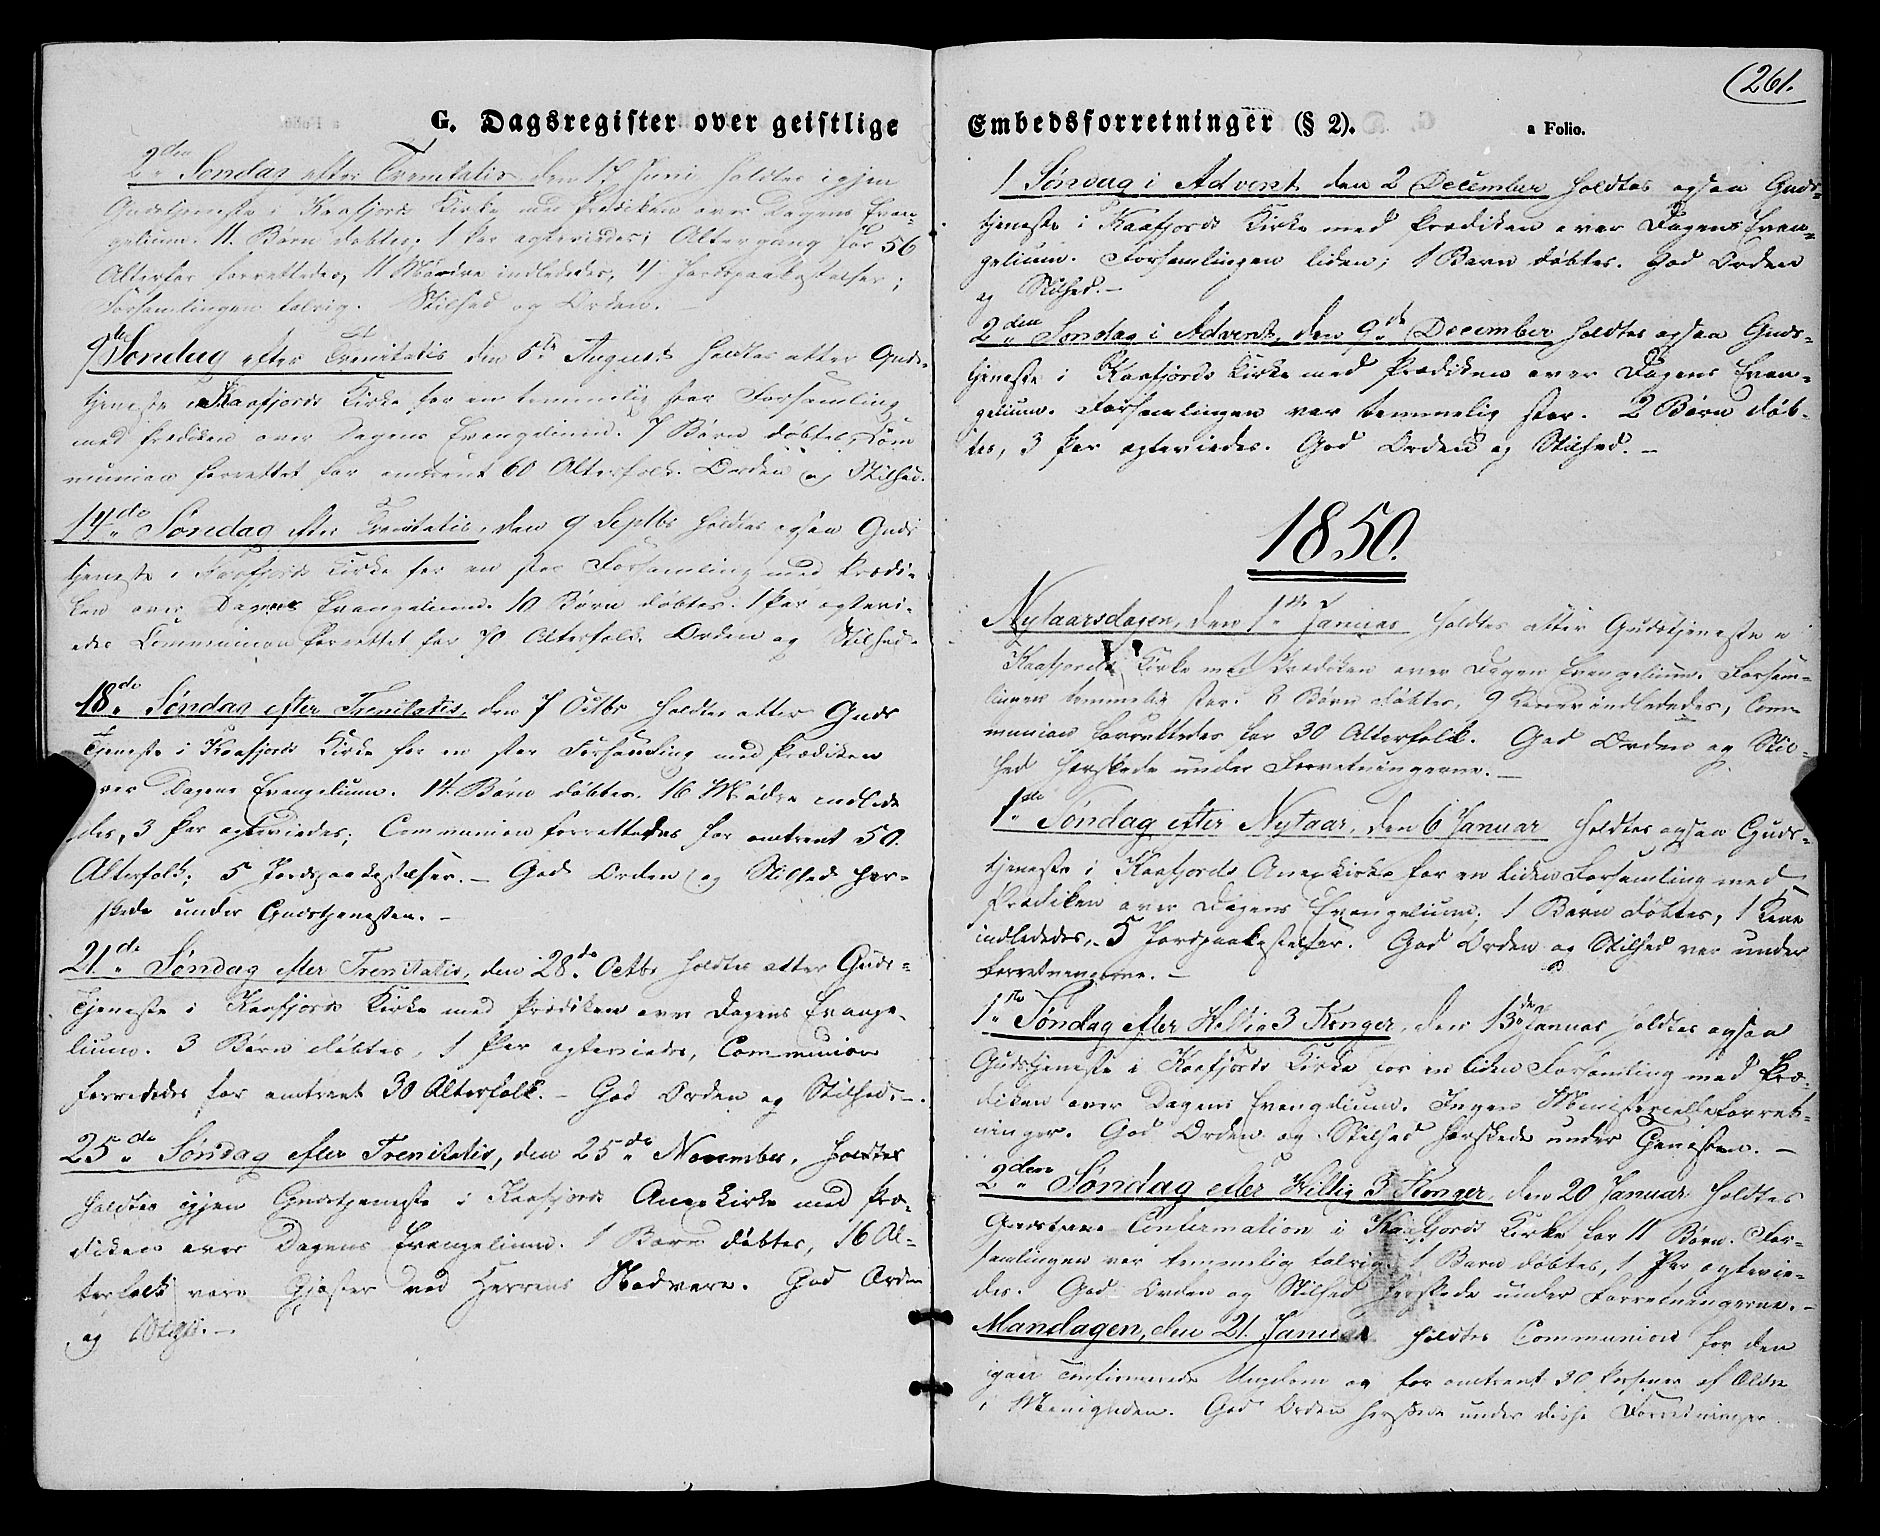 G. Dagsregister over geistlige
2den Søndag efter Trenitatis den 17 Juni holdtes igjen
Gudstjeneste i Kaafjords Kirke med Prædiken over Dagens Evan-
gelium. 11 Børn døbtes, 1 Par ægteviedes; Altergang for 56
Alterfolk forrettedes, 11 Mødre indlededes, 4 Jordpaakastelser;
Forsamlingen talrig. Stilhed og Orden. -
9de Søndag efter Trenitatis den 5te August holdtes atter Guds-
tjeneste i Kaafjords Kirke for en temmelig stor Forsamling
med Prædiken over Dagens Evangelium. 7 Børn døbtes, Com
munion forrettet for omtrent 60 Alterfolk. Orden og Stilhed.
14de Søndag efter Trenitatis, den 9 Septbr holdtes ogsaa Guds
tjeneste i Kaafjords Kirke for en stor Forsamling med Prædi-
ken over Dagens Evangelium. 10 Børn døbtes. 1 Par ægtevi-
edes Communion forrettet for 70 Alterfolk. Orden og Stilhed.
18de Søndag efter Trenitatis, den 7 Octbr holdtes atter Guds
tjeneste i Kaafjords Kirke for en stor Forsamling med Prædiken
over Dagens Evangelium. 14 Børn døbtes. 16 Mødre indlede
des, 3 Par ægteviedes; Communion forrettedes for omtrent 50.
Alterfolk; 5 Jordpaakastelser. - God Orden og Stilhed her-
skede under Gudstjenesten. -
21de Søndag efter Trenitatis, den 28de Octbr holdtes atter Guds-
tjeneste i Kaafjords Kirke med Prædiken over Dagens Evange-
lium. 3 Børn døbtes, 1 Par ægteviedes, Communion
forrededes for omtrent 30 Alterfolk. - God Orden og Stilhed. -
25de Søndag efter Trenitatis, den 25de November, holdtes
holdtes igjen Gudstjeneste i Kaafjords Anexkirke med Præ-
diken over Dagens Evangelium. 1 Barn døbtes, 16 Al-
terfolk vare Gjæster ved Herrens Nadvere. God Orden
og -
(261.
Embedsforretninger (§ 2).
a Folio.
1 Søndag i Advent den 2 December holdtes ogsaa Guds-
tjeneste i Kaafjords Kirke med Prædiken over Dagens Evan-
gelium. Forsamlingen liden; 1 Barn døbtes. God Orden
og Stilhed. -
2den Søndag i Advent, den 9de December holdtes ogsaa Guds-
tjeneste i Kaafjords Kirke med Prædiken over Dagens Evan-
gelium. Forsamlingen var temmelig stor. 2 Børn døb-
tes, 3 Par ægteviedes. God Orden og Stilhed. -
1850.
Nytaarsdagen, den 1ste Januar holdtes atter Gudstjeneste i
Kaafjords Kirke med Prædiken over Dagens Evangelium. Forsam-
lingen temmelig stor. 8 Børn døbtes, 9 Koner indlededes, Com-
munion forrettedes for 30 Alterfolk. God Orden og Stil-
hed herskede under Forretningerne. -
1ste Søndag efter Nytaar, den 6 Januar holdtes ogsaa Guds-
tjeneste i Kaafjords Anexkirke for en liden Forsamling med
Prædiken over Dagens Evangelium; 1 Barn døbtes, 1 Kone
indlededes, 5 Jordpaakastelser. God Orden og Stilhed var under
Forretningerne. -
1ste Søndag efter Hellig 3 Konger, den 13de Januar holdtes ogsaa
Gudstjeneste i Kaafjords Kirke for en liden Forsamling med Præ-
diken over Dagens Evangelium. Ingen Ministerielle forret-
ninger. God Orden og Stilhed herskede under Tjenesten. -
2den Søndag efter Hellig 3 Konger, den 20 Januar holdtes
Confirmation i Kaafjords Kirke for 11 Børn. For-
samlingen var temmelig talrig, 1 Barn døbtes, 1 Par ægtevie-
des. God Orden og Stilhed herskede under Forretningerne. -
Mandagen, den 21. Januar holdtes Communion for den
igaar confirmerede Ungdom og for omtrent 30 Personer af Ældre
i Menigheden. God Orden herskede under disse Forretninger.